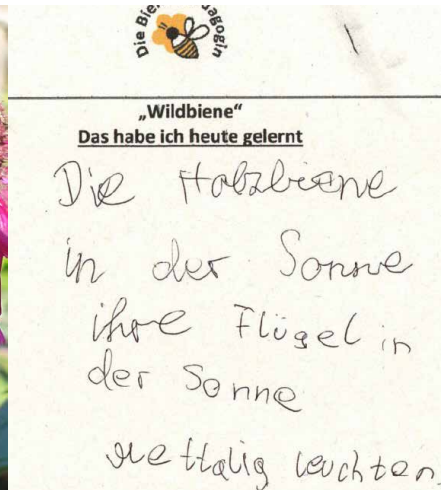 Die Bie agogin
„Wildbiene“
Das habe ich heute gelernt
Die Holzbiene
in der Sonne
ihre Flügel in
der Sonne
mettalig leuchten